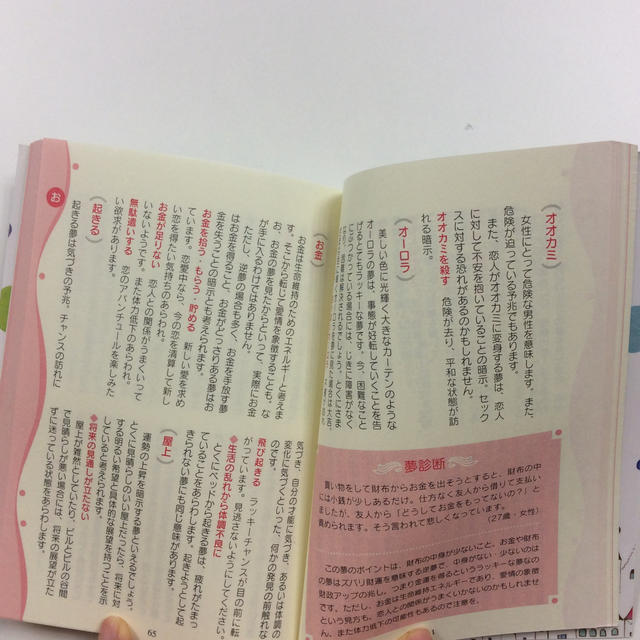 オオカミ
女性にとって危険な男性を意味します。また、
危険が迫っている予兆でもあります。
また、恋人がオオカミに変身する夢は、恋人
に対して不安を抱いていることの暗示。セック
スに対する恐れがあるのかもしれません。
オオカミを殺す 危険が去り、平和な状態が訪
れる暗示。
オーロラ
美しい色に光輝く大きなカーテンのような
オーロラの夢は、事態が好転していくことを告
げるとてもラッキーな夢です。今、困難なこと
にぶつかっている場合には、じきに障害がなく
なり、問題は解決されるでしょう。とくにさま
夢診断
買い物をして財布からお金を出そうとすると、財布の中
には小銭が少しあるだけ。仕方なく友人から借りて支払い
ましたが、友人から「どうしてお金をもってないの?」と
責められます。そう言われて悲しくなっています。
(27歳・女性)
この夢のポイントは、財布の中身が少ないこと。お金や財布
の夢はズバリ財運を意味する逆夢で、中身がない・少ないのは
財政アップの兆し。つまり金運を得るというラッキーな夢なの
です。ただし、お金は生命維持エネルギーであり、愛情の象徴
という見方も。恋人との関係がうまくいかないのかもしれませ
ん。また体力低下の可能性もあるので注意を。
お金
お金は生命維持のためのエネルギーと考えま
す。そこから転じて愛情を象徴することも。な
お、お金の夢を見たからといって、実際にお金
が手に入るわけではありません。
ただし、逆夢の場合も多く、お金を手放す夢
はお金を得ること、お金がどっさりある夢はお
金を失うことの暗示とも考えられます。
お金を拾う・もらう・貯める 新しい愛を求め
ています。恋愛中なら、今の恋を清算して新し
い恋を得たい気持ちのあらわれ。
お金が足りない 恋人との関係がうまくいって
いないようです。また体力低下のあらわれ。
無駄遣いする 恋のアバンチュールを楽しみた
い欲求があります。
起きる
起きる夢は気づきの予兆。チャンスの訪れに
気づき、自分の才能に気づき、あるいは体調の
変化に気づくといった、何かの発見の前触れな
のです。
飛び起きる ラッキーチャンスが目の前に転
がっています。見逃さないようにしてください。
生活の乱れから体調不良に
とくにベッドから起きる夢は、疲れがたまっ
ていることをあらわします。起きようとして起
きられない夢にも同じ意味があります。
屋上
運勢の上昇を暗示する夢といえるでしょう。
とくに見晴らしのいい屋上だったら、将来に対
する明るい希望と具体的な展望を持つことを示
していると考えられます。
将来の見通しが立たない
屋上が雑然としていたり、ビルとビルの谷間
で見晴らしが悪い場合には、将来の展望が立た
ずに迷っている状態をあらわします。
お
65